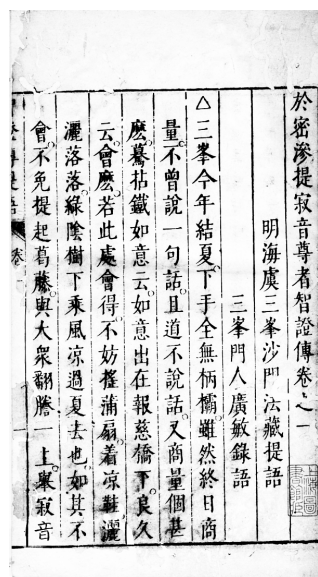 於密滲提寂音尊者智證傳卷之一
明海虞三峯沙門法藏提語
三峯門人廣敏錄語
△三峯今年結夏下手全無柄欛雖然終日商
量不曾說一句話且道不說話又商量個甚
麽驀拈鐵如意云如意出在報慈橋下良久
云會麽若此處會得不妨搖蒲扇着凉鞋灑
灑落落綠陰樹下乘風凉過夏去也如其不
會不免提起葛藤與大衆翻謄一上舉寂音